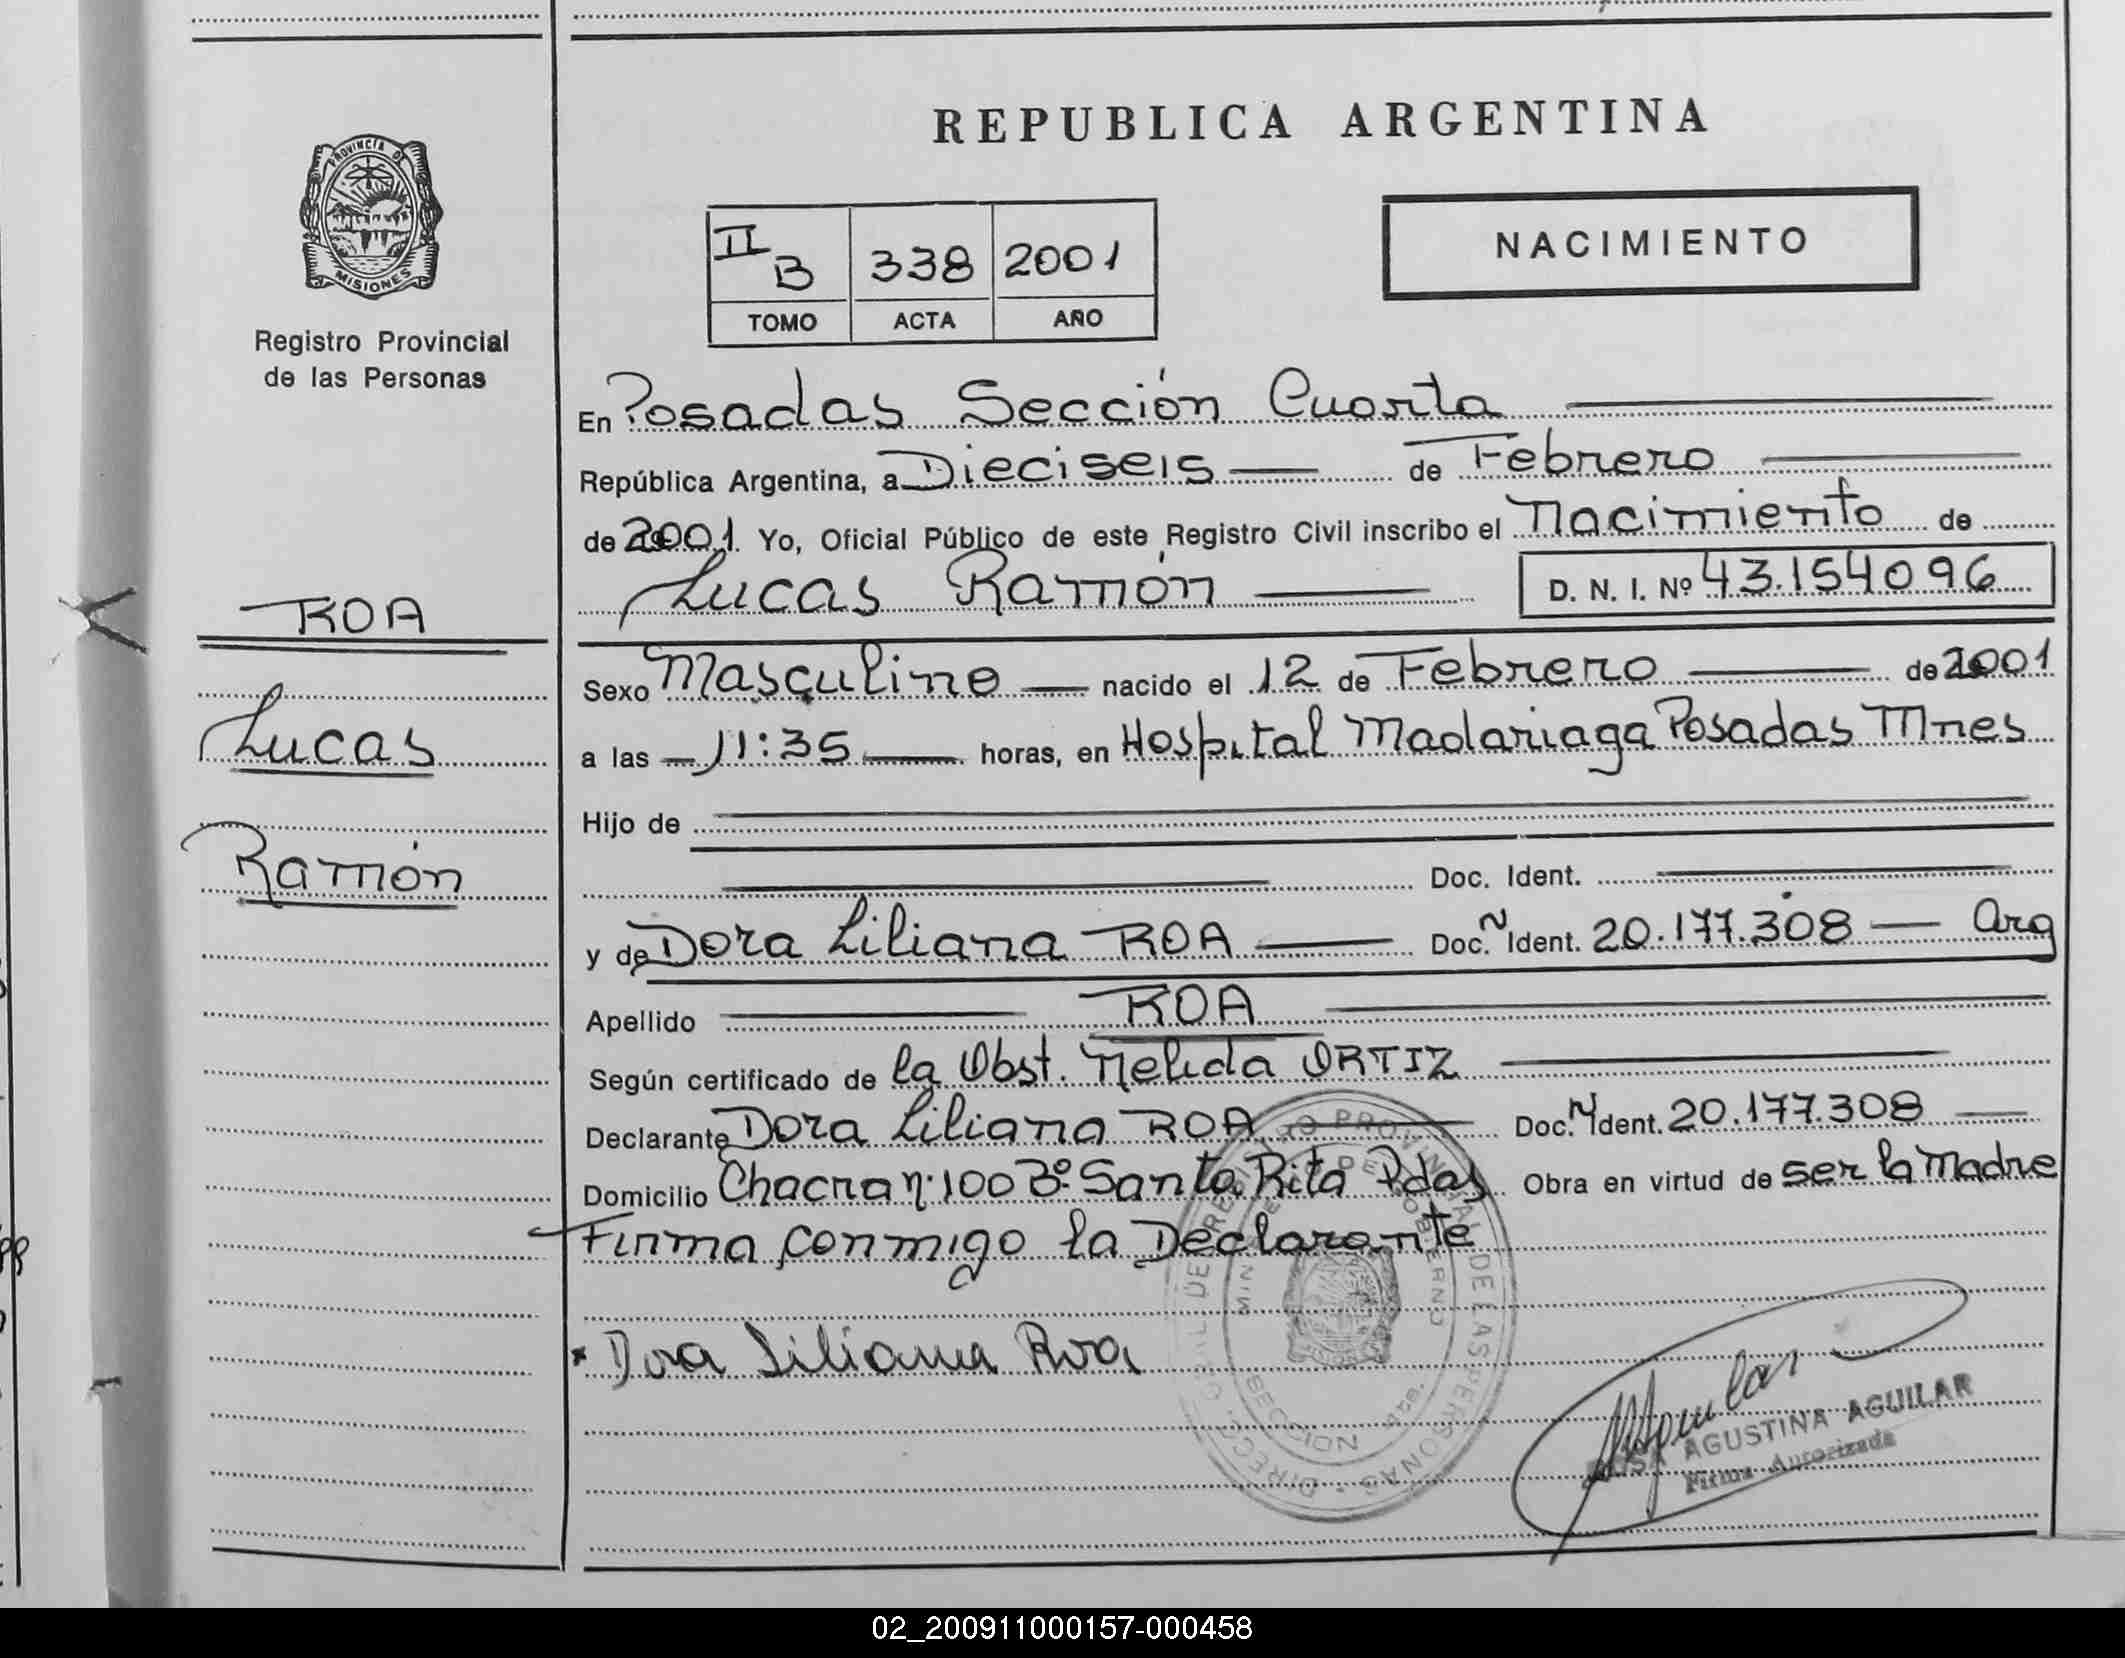 REPUBLICA ARGENTINA
PROVINCIA DE
MISIONES
Registro Provincial
de las Personas
II B 338 2001
TOMO ACTA AÑO
NACIMIENTO
En Posadas Sección Cuarta
República Argentina, a Dieciseis de Febrero
de 2001. Yo, Oficial Público de este Registro Civil inscribo el Nacimiento de
Lucas Ramón D. N. I. Nº 43.154096
ROA
Lucas
Ramón
Sexo Masculino nacido el 12 de Febrero de 2001
a las 11:35 horas, en Hospital Madariaga Posadas Mnes
Hijo de
Doc. Ident.
y de Dora Liliana ROA Doc. N Ident. 20.177.308 Arg
Apellido ROA
Según certificado de la Obst. Nelida ORTIZ
Declarante Dora Liliana ROA Doc. N Ident. 20.177.308
Domicilio Chacra n. 100 Bº Santa Rita Pdas Obra en virtud de ser la Madre
Firma conmigo la Declarante
Dora Liliana Roa
AGUSTINA AGUILAR
Firma Autorizada
02_200911000157-000458